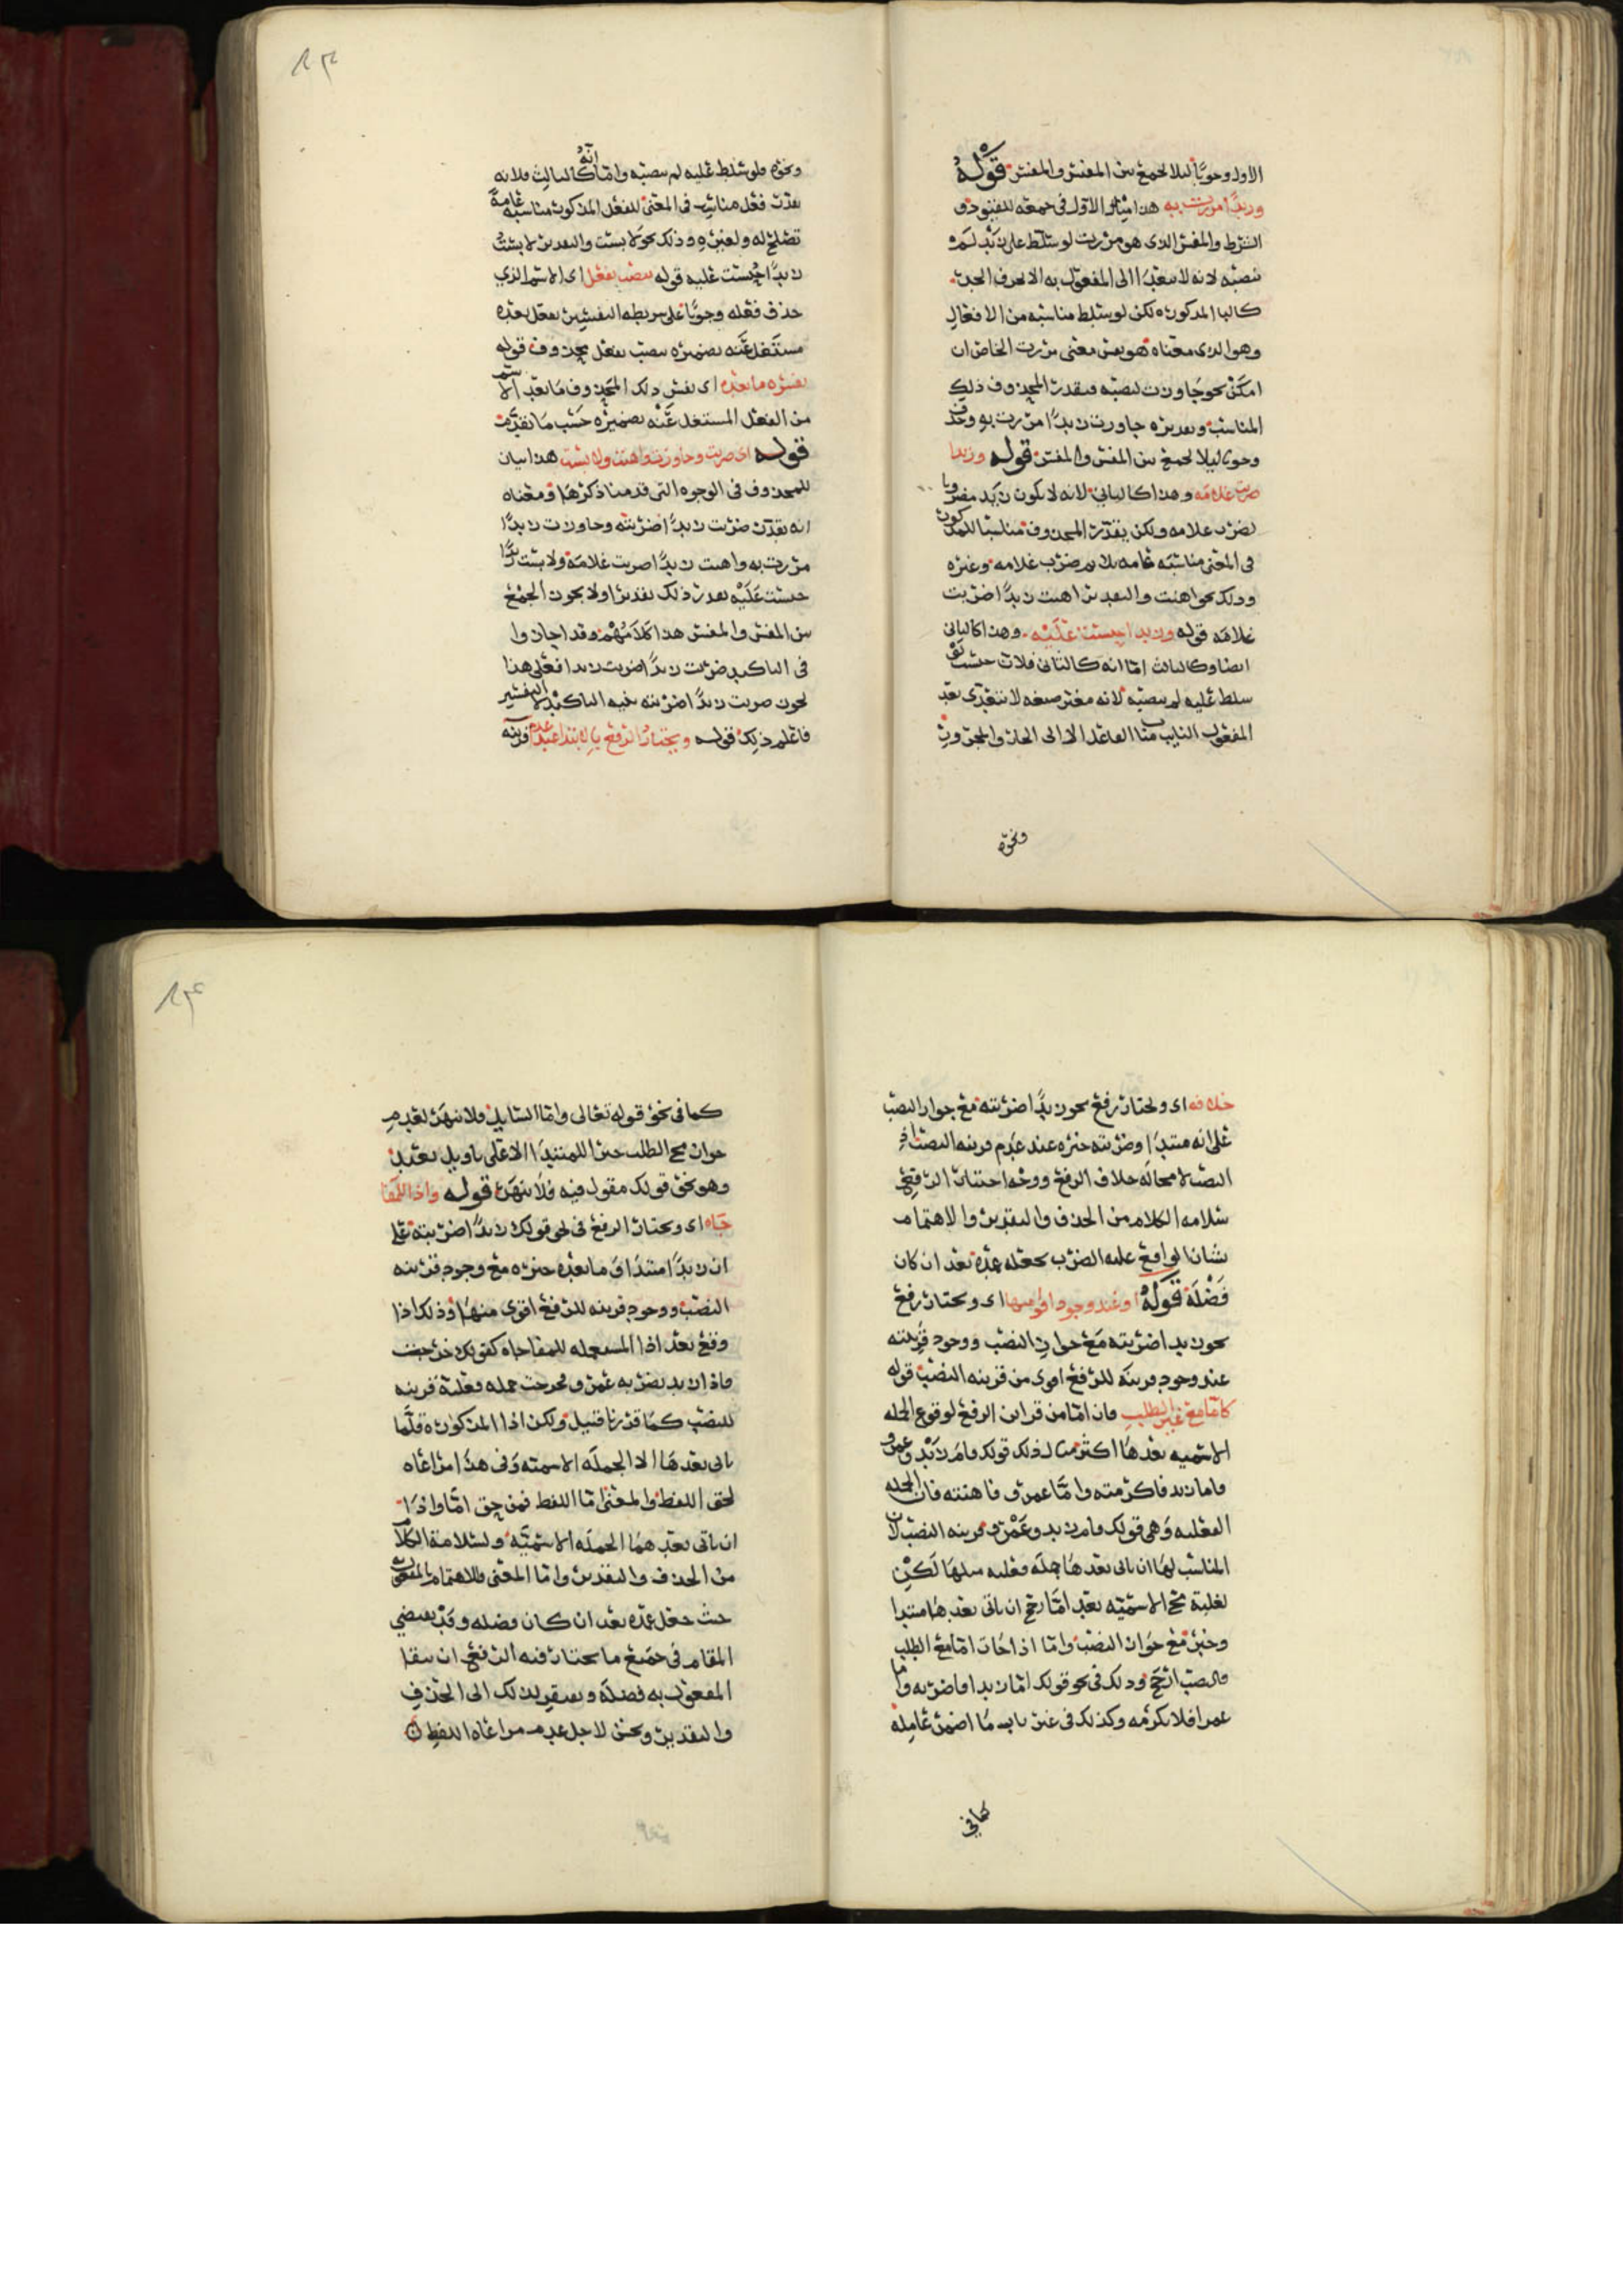 الاول وجوبًا ليلا يجمع بين المفسر والمفسر قوله
وزيدًا مررت به هذا مثال الاول في جمعه للقيود و
الشرط والمفسر الذي هو مررت لو سلط على زيد لم
ينصبه لانه لا يتعدا الى المفعول به الا بحرف الجر
كالبا المذكوره لكن لو سلط مناسبه من الافعال
وهو الذى معناه هو بعض معنى مررت الخاص ان
امكن نحو جاوزت لنصبه فيقدر المحذوف ذلك
المناسب وتقديره جاوزت زيدًا مررت به وحذف
وجوبا ليلا يجمع بين المفسر والمفسر قوله وزيدا
ضربت غلامه وهذا كالثاني لانه لا يكون زيد مضروبا
لضرب غلامه ولكن يقدر المحذوف مناسبا للمذكور
في المعنى مناسبه عامه لضرب غلامه وغيره
وذلك نحو اهنت والتقدير اهنت زيدًا ضربت
غلامه قوله وزيدا حبست عليه وهذا كالثاني
ايضا وكالثالث اما انه كالثاني فلان حبست لو
سلط عليه لم ينصبه لانه مغير صيغه لا يتعدى بعد
المفعول النايب مناب الفاعل الا الى الجار والمجرور
ونحوه
ونحوه فلو سلط عليه لم ينصبه واما انه كالثالث فلانه
يقدر فعل مناسب في المعنى للفعل المذكور مناسبه عامة
تصلح له ولغيره وذلك نحو لابست والتقدير لابست
زيدًا حبست عليه قوله ينصب بفعل اى الاسم الذي
حذف فعله وجوبًا على شريطه التفسير بفعل بعده
مشتغل عنه بضميره ينصب بفعل محذوف قوله
يفسره ما بعده اى يفسر ذلك المحذوف ما بعد الاسم
من الفعل المشتغل عنه بضميره حسب ما تقدم
قوله اى ضربت وجاوزت واهنت ولابست هذا بيان
للمحذوف في الوجوه التى قدمنا ذكرها ومعناه
انه يقدر ضربت زيدًا ضربته وجاوزت زيدًا
مررت به واهنت زيدًا ضربت غلامه ولابست زيدًا
حبست عليه يقدر ذلك تقديرا ولا يجوز الجمع
بين المفسر والمفسر هذا كلامهم وقد اجازوا
في التاكيد ضربت زيدًا ضربت زيدا فعلى هذا
يجوز ضربت زيدًا ضربته بنيه التاكيد لا التفسير
فاعلم ذلك قوله ويختار الرفع بالابتدا عند عدم قرينه
خلافه اى ويختار رفع نحو زيدًا ضربته مع جواز النصب
على انه مبتدا وضربته خبره عند عدم قرينه النصب اذ
النصب لا محاله خلاف الرفع ووجه اختيار الرفع
سلامه الكلام من الحذف والتقدير والاهتمام
بشان الواقع عليه الضرب بجعله عمدة بعد ان كان
فضلة قوله او عند وجود اقوى منها اى ويختار رفع
نحو زيد ضربته مع جواز النصب ووجود قرينته
عند وجود قرينه للرفع اقوى من قرينه النصب قوله
كاما مع غير الطلب فان اما من قراين الرفع لوقوع الجمله
الاسميه بعدها اكثر مثال ذلك قولك قام زيد وعمرو
فاما زيد فاكرمته واما عمرو فاهنته فان الجمله
الفعليه وهي قولك قام زيد وعمرو قرينه النصب لان
المناسب لها ان ياتى بعدها جمله فعليه مثلها لكن
لغلبة مجى الاسميه بعد اما رجح ان ياتى بعدها مبتدا
وخبر مع جواز النصب واما اذا جات اما مع الطلب
فالنصب ارجح وذلك في نحو قولك اما زيدا فاضربه واما
عمرا فلا تكرمه وكذلك في غير باب ما اضمر عامله
كما في
كما في نحو قوله تعالى واما السايل فلا تنهر لعدم
جواز مجى الطلب خبرا للمبتدا الا على تاويل بعيد
وهو نحو قولك مقول فيه فلا تنهر قوله واذا للمفا
جاه اى ويختار الرفع في نحو قولك زيدًا ضربته على
ان زيدًا مبتدا وما بعده خبره مع وجود قرينه
النصب ووجود قرينه للرفع اقوى منها وذلك اذا
وقع بعد اذا المستعمله للمفاجاة كقولك خرجت
فاذا زيد يضربه عمرو فخرجت جمله فعلية قرينه
للنصب كما قدرنا قبيل ولكن اذا المذكوره قلما
ياتى بعدها الا الجمله الاسميه وفى هذا مراعاه
لحق اللفظ والمعنى اما اللفظ فمن حق اما واذا
ان ياتى بعدهما الجمله الاسميه ولسلامة الكلام
من الحذف والتقدير واما المعنى فللاهتمام بالمفعول
حيث جعل عمده بعد ان كان فضله وقد يقتضي
المقام في جميع ما يختار فيه الرفع ان يبقا
المفعول به فضله ويفتقر بذلك الى الحذف
والتقدير ونحن لاجل عدم مراعاه اللفظ